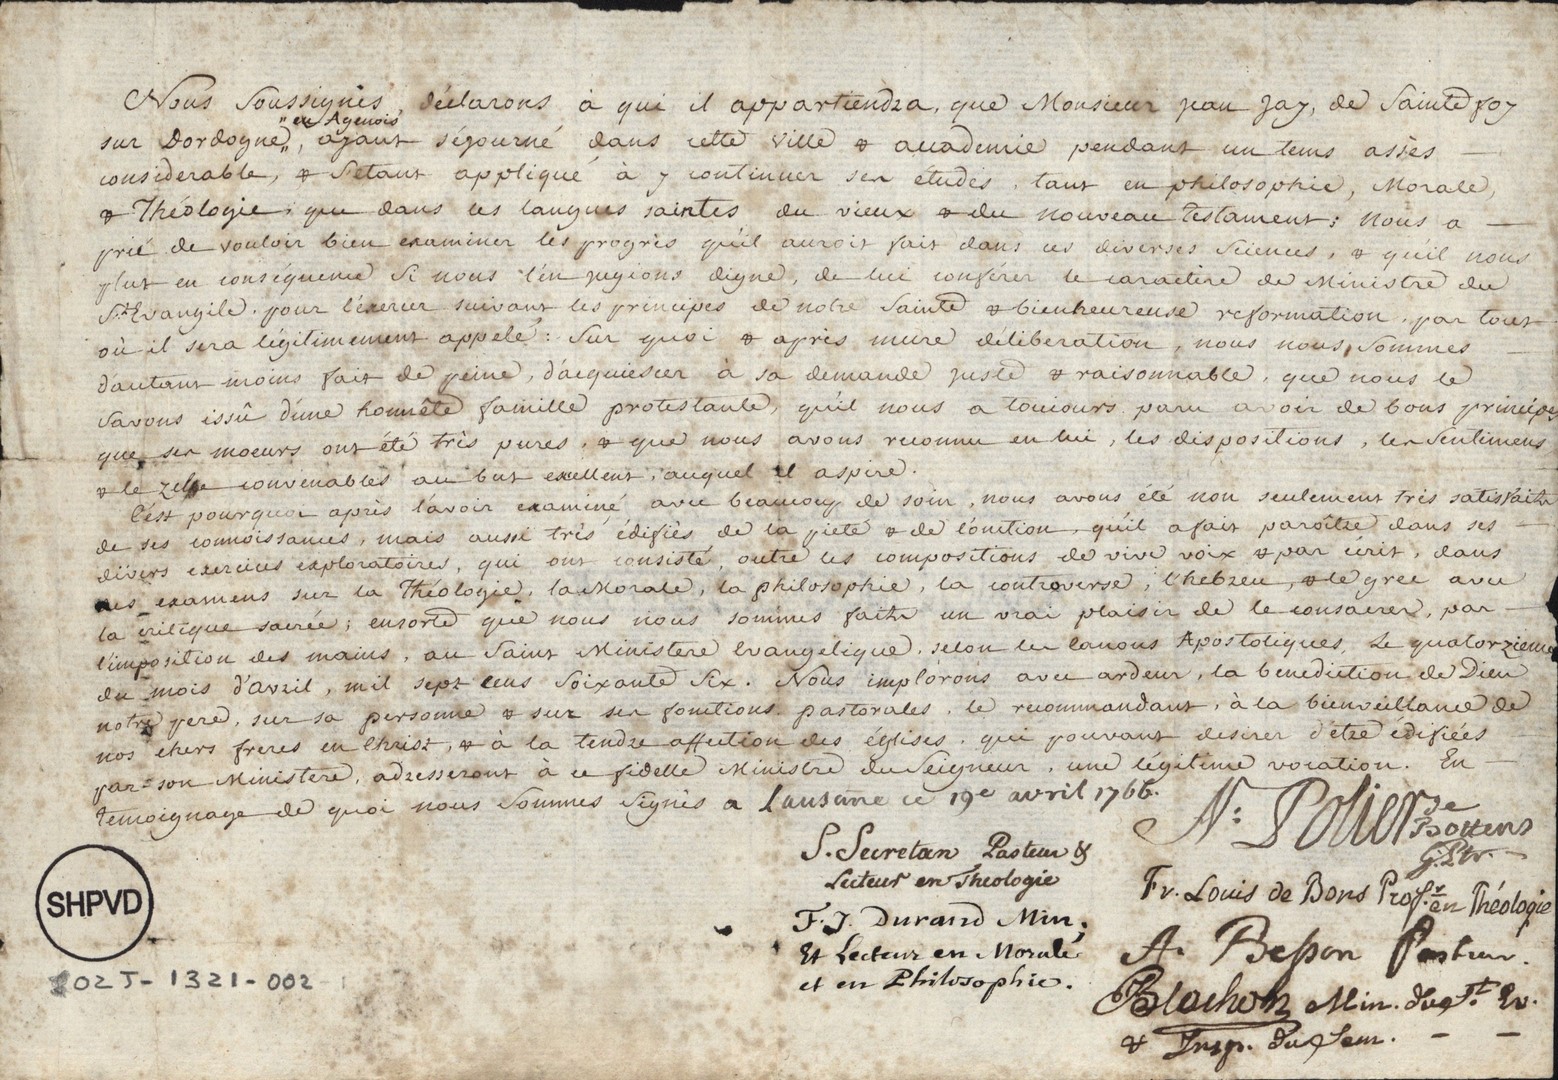 Nous soussignés, déclarons à qui il appartiendra, que Monsieur jean Jay, de Sainte foy
" en Agenois
sur Dordogne ", ayant séjourné dans cette ville & academie pendant un tems assès —
considerable, & s'etant appliqué à y continuer ses études, tant en philosophie, Morale,
& Théologie, que dans les langues saintes du vieux & du nouveau testament; nous a —
prié de vouloir bien examiner les progrès qu'il auroit fait dans ces diverses Sciences, & qu'il nous
plut en consequence si nous l'en jugions digne, de lui conférer le caractère de Ministre du
St Evangile, pour l'éxercer suivant les principes de notre Sainte & bienheureuse reformation, par tout
où il sera légitimement appelé: Sur quoi & après mure déliberation, nous nous sommes —
d'autant moins fait de peine, d'acquiescer à sa demande juste & raisonnable, que nous le
savons issû d'une honnête famille protestante, qu'il nous a toujours paru avoir de bons principes
que ses moeurs ont été très pures, & que nous avons reconnu en lui, les dispositions, les sentimens
& le zele convenables au but excellent, auquel il aspire.
C'est pourquoi après l'avoir examiné avec beaucoup de soin, nous avons été non seulement très satisfaits
de ses connoissances, mais aussi très édifiés de la pieté & de l'onction, qu'il a fait paroître dans ses —
divers exercices exploratoires, qui ont consisté, outre les compositions de vive voix & par écrit, dans
des examens sur la Théologie, la Morale, la philosophie, la controverse, l'hebreu, & le grec avec
la critique sacrée; ensorte que nous nous sommes faits un vrai plaisir de le consacrer, par —
l'imposition des mains, au Saint Ministere Evangelique, selon les canons Apostoliques, Le quatorzieme
du mois d'avril, mil sept cens soixante six. Nous implorons avec ardeur, la benediction de Dieu
notre pere, sur sa personne & sur ses fonctions pastorales, le recommandant, à la bienveillance de
nos chers freres en Christ, & à la tendre affection des églises, qui pouvant desirer d'être édifiées —
par son Ministere, adresseront à ce fidelle Ministre du Seigneur, une légitime vocation. En —
temoignage de quoi nous sommes signès a Lausanne ce 19e avril 1766.
N: Polier de
Bottens
S. Secretan Pasteur &
Lecteur en Theologie
Fr. Louis de Bons Profr en Théologie
F. J. Durand Min.
Et Lecteur en Morale
et en Philosophie.
A. Besson Pasteur.
Blachon Min. du St Ev.
& Insp. du Sem. — —
SHPVD
02J-1321-002